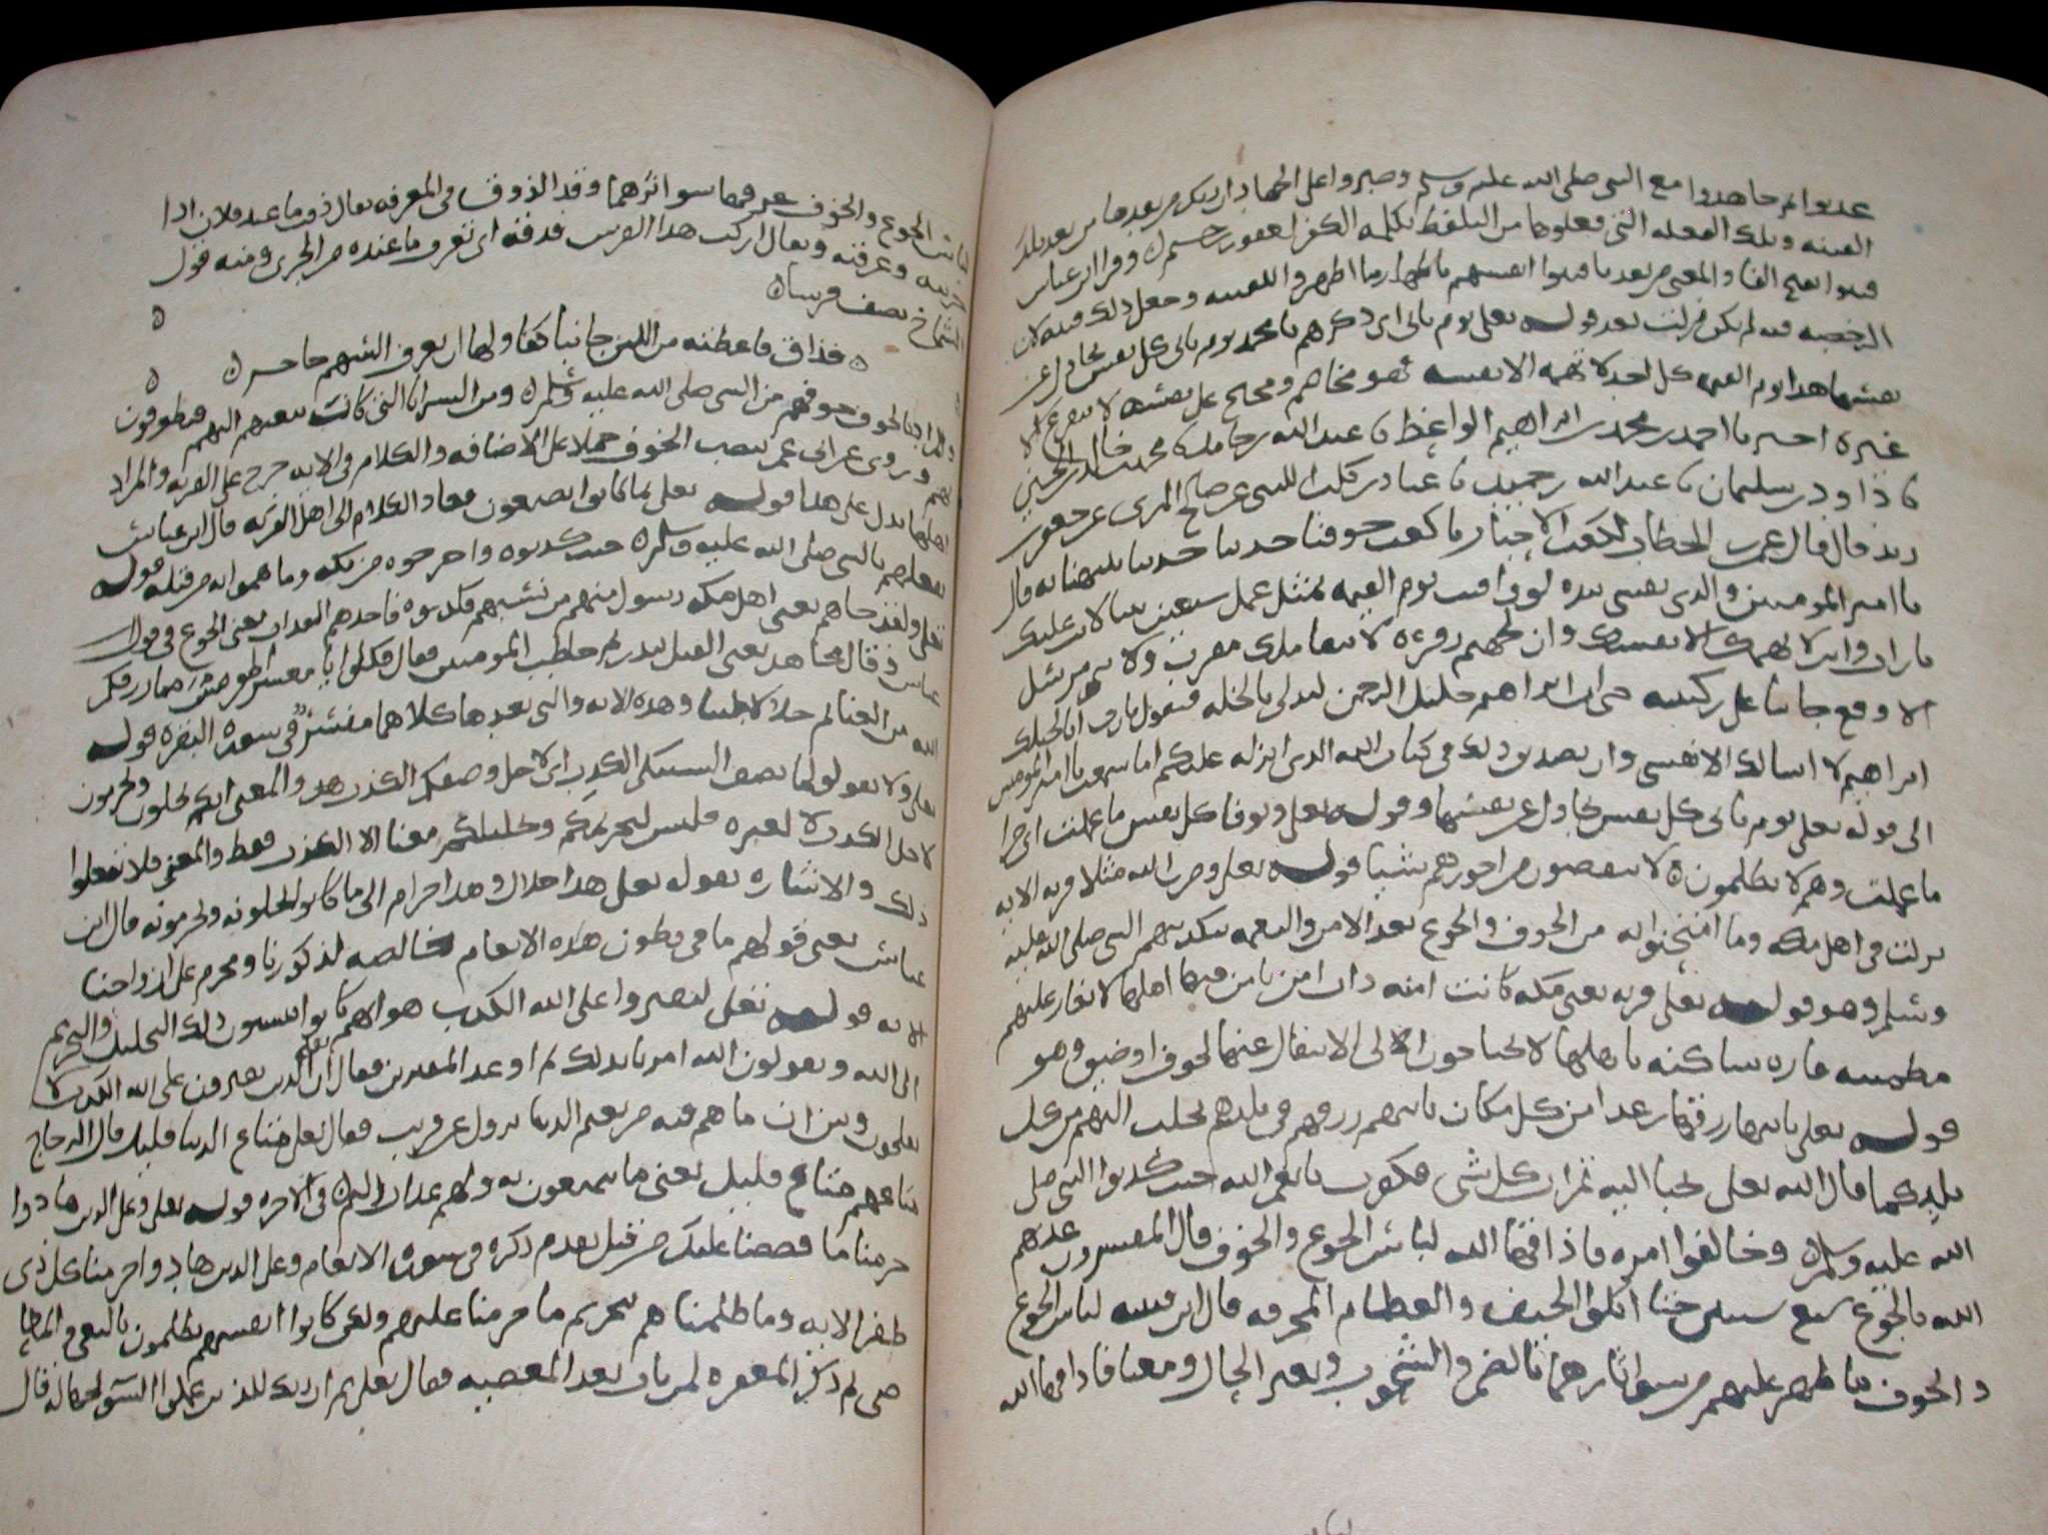 عذبوا ثم جاهدوا مع النبي صلى الله عليه وسلم وصبروا على الجهاد ان ربك من بعدها من بعد تلك
الفتنه وتلك الفعله التي فعلوها من التلفظ بكلمه الكفر لغفور رحيم وقرا ابن عباس
فتنوا بفتح الفا والمعنى من بعد ما فتنوا انفسهم باظهار ما اظهروا للتقيه وجعل ذلك فتنه لان
الرخصه فيه لم تكن نزلت بعد قوله تعلى يوم تاتي اي ذكرهم يا محمد يوم تاتي كل نفس تجادل عن
نفسها هذا يوم القيمه كل احد لا تهمه الا نفسه فهو مخاصم ومحتج عن نفسه لا يتفرغ الى
غيره اخبرنا احمد بن محمد بن ابراهيم الواعظ نا عبد الله بن حامد نا محمد بن خالد نا
نا داود بن سليمان نا عبد الله بن حميد نا عن صالح المري عن جعفر
زيد قال قال عمر بن الخطاب لكعب الاحبار يا كعب خوفنا حدثنا حديثا قال
يا امير المومنين والذي نفسي بيده لو وافيت يوم القيمه بمثل عمل سبعين نبيا لاتت عليك
تارات وانت لا تهمك الا نفسك وان لجهنم زفره لا يبقى ملك مقرب ولا نبي مرسل
الا وقع جاثيا على ركبتيه حتى ان ابراهيم خليل الرحمن ليدلي بالخله فيقول يا رب انا خليلك
ابراهيم لا اسالك الا نفسي وان تصديق ذلك في كتاب الله الذي انزله عليكم اما سمعت يا امير المومنين
الى قوله تعلى يوم تاتي كل نفس تجادل عن نفسها وقوله تعلى وتوفا كل نفس ما عملت اي جزا
ما عملت وهم لا يظلمون لا ينقصون من اجورهم شيا قوله تعلى وضرب الله مثلا قريه الايه
نزلت في اهل مكه وما امتحنوا به من الخوف والجوع بعد الامن والنعمه بتكذيبهم النبي صلى الله عليه
وسلم وهو قوله تعلى قريه يعني مكه كانت امنه ذات امن يامن فيها اهلها لا يغار عليهم
مطمئنه قاره ساكنه باهلها لا يحتاجون الى الانتقال عنها لخوف او ضيق وهو
قوله تعلى ياتيها رزقها رغدا من كل مكان ياتيهم رزقهم في بلدهم يجلب اليهم من كل
بلد كما قال الله تعلى يجبا اليه ثمرات كل شي فكفرت بانعم الله حيث كذبوا النبي صلى
الله عليه وسلم وخالفوا امره فاذاقها الله لباس الجوع والخوف قال المفسرون عذبهم
الله بالجوع سبع سنين حتا اكلوا الجيف والعظام المحرقه قال ابن قتيبه لباس الجوع
والخوف ما ظهر عليهم من سوا اثارهما بالضمر والشحوب وتغير الحال ومعنا فاذاقها الله
لباس الجوع والخوف عرفها سوا اثرهما وقد الذوق في المعرفه يقال ذق ما عند فلان اذا
جربته وعرفته ويقال اركب هذا الفرس فذقه اي تعرف ما عنده من الجري ومنه قول
الشماخ يصف قوسا
فذاق فاعطته من اللين جانبا كفا ولها ان يغرق السهم حاجز
بالخوف خوفهم من النبي صلى الله عليه وسلم ومن السرايا التي كانت يبعثهم اليهم فيطوفون
بهم وروي عن ابي عمر بنصب الخوف حملا على الاضافه والكلام في الايه خرج على القريه والمراد
اهلها يدل على هذا قوله تعلى بما كانوا يصنعون فعاد الكلام الى اهل القريه قال ابن عباس
بفعلهم بالنبي صلى الله عليه وسلم حيث كذبوه واخرجوه من مكه وما هموا به من قتله قوله
تعلى ولقد جاهم يعني اهل مكه رسول منهم من نسبهم فكذبوه فاخذهم العذاب يعني الجوع في قول
عباس وقال مجاهد يعني القتل ببدر ثم خاطب المومنين فقال فكلوا يا معشر المومنين مما رزقكم
الله من الغنائم حلالا طيبا وهذه الايه والتي بعدها كلاهما مفسر في سوره البقره قوله
تعلى ولا تقولوا لما تصف السنتكم الكذب اي لاجل وصفكم الكذب هذا والمعنى انكم تحلون وتحرمون
لاجل الكذب لا لغيره فليس لتحريمكم وتحليلكم معنا الا الكذب فقط والمعنى فلا تفعلوا
ذلك والاشاره بقوله تعلى هذا حلال وهذا حرام الى ما كانوا يحلونه ويحرمونه قال ابن
عباس يعني قولهم ما في بطون هذه الانعام خالصه لذكورنا ومحرم على ازواجنا
الايه قوله تعلى لتفتروا على الله الكذب هو انهم كانوا ينسبون ذلك التحليل والتحريم
الى الله ويقولون الله امرنا بذلك ثم اوعد المفترين فقال ان الذين يفترون على الله الكذب لا
يفلحون وبين ان ما هم فيه من نعيم الدنيا يزول عن قريب فقال تعلى متاع الدنيا قليل قال الزجاج
متاعهم متاع قليل يعني ما يتمتعون به ولهم عذاب اليم في الاخره قوله تعلى وعلى الذين هادوا
حرمنا ما قصصنا عليك من قبل تقدم ذكره في سوره الانعام وعلى الذين هادوا حرمنا كل ذي
ظفر الايه وما ظلمناهم بتحريم ما حرمنا عليهم ولكن كانوا انفسهم يظلمون بالبغي والمعاصي
ثم ذكر المغفره لمن تاب بعد المعصيه فقال تعلى ثم ان ربك للذين عملوا السو بجهاله قال